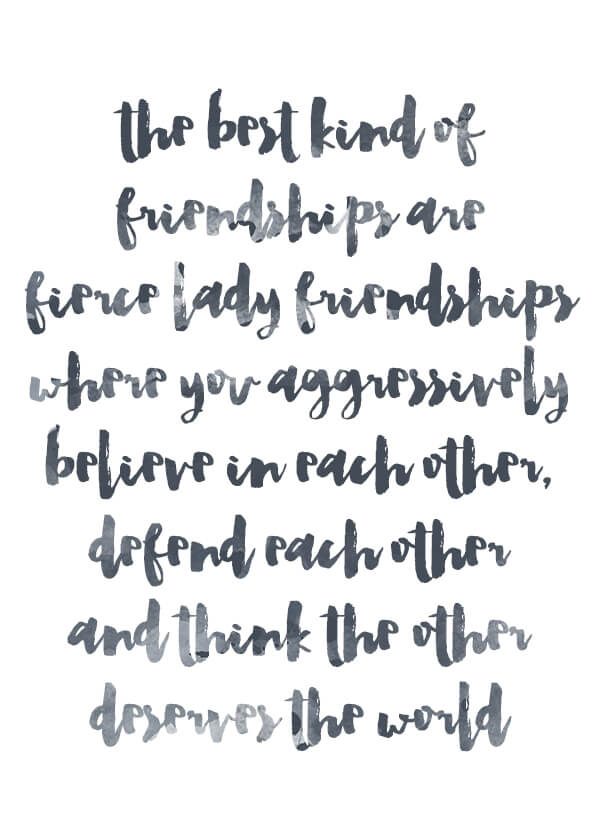 the best kind of
friendships are
fierce lady friendships
where you aggressively
believe in each other,
defend each other
and think the other
deserves the world